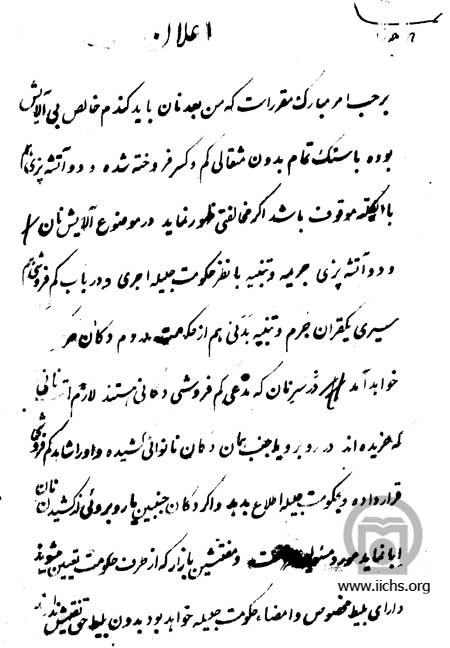 اعلان
برحسب امر مبارک مقررات که من بعد نان باید گندم خالص بی آلایش
بوده با سنگ تمام بدون مثقالی کم و کسر فروخته شده و دو آتشه پزی هم
بالکلیه موقوف باشد اگر مخالفتی ظهور نماید در موضوع آلایش نان
و دو آتشه پزی جریمه و تنبیه با نظر حکومت جلیله اجری و در باب کم فروشی هم
سیری یکقران جرم و تنبیه بدنی هم از حکومت و دم دکان
خواهد آمد در سر نان که مدعی کم فروشی دکانی هستند لازم است نانی
که خریده اند در روبرو یا جنب همان دکان نانوائی کشیده و او را شاهد کم فروشی
قرار داده و بحکومت جلیله اطلاع بدهد و اگر دکان جنبین یا روبروئی از کشیدن نان
ابا نماید مورد مسئولیت و مفتشین بازار که از طرف حکومت تعیین میشوند
دارای بلیط مخصوص و امضاء حکومت جلیله خواهد بود بدون بلیط حق تفتیش ندارند
www.iichs.org